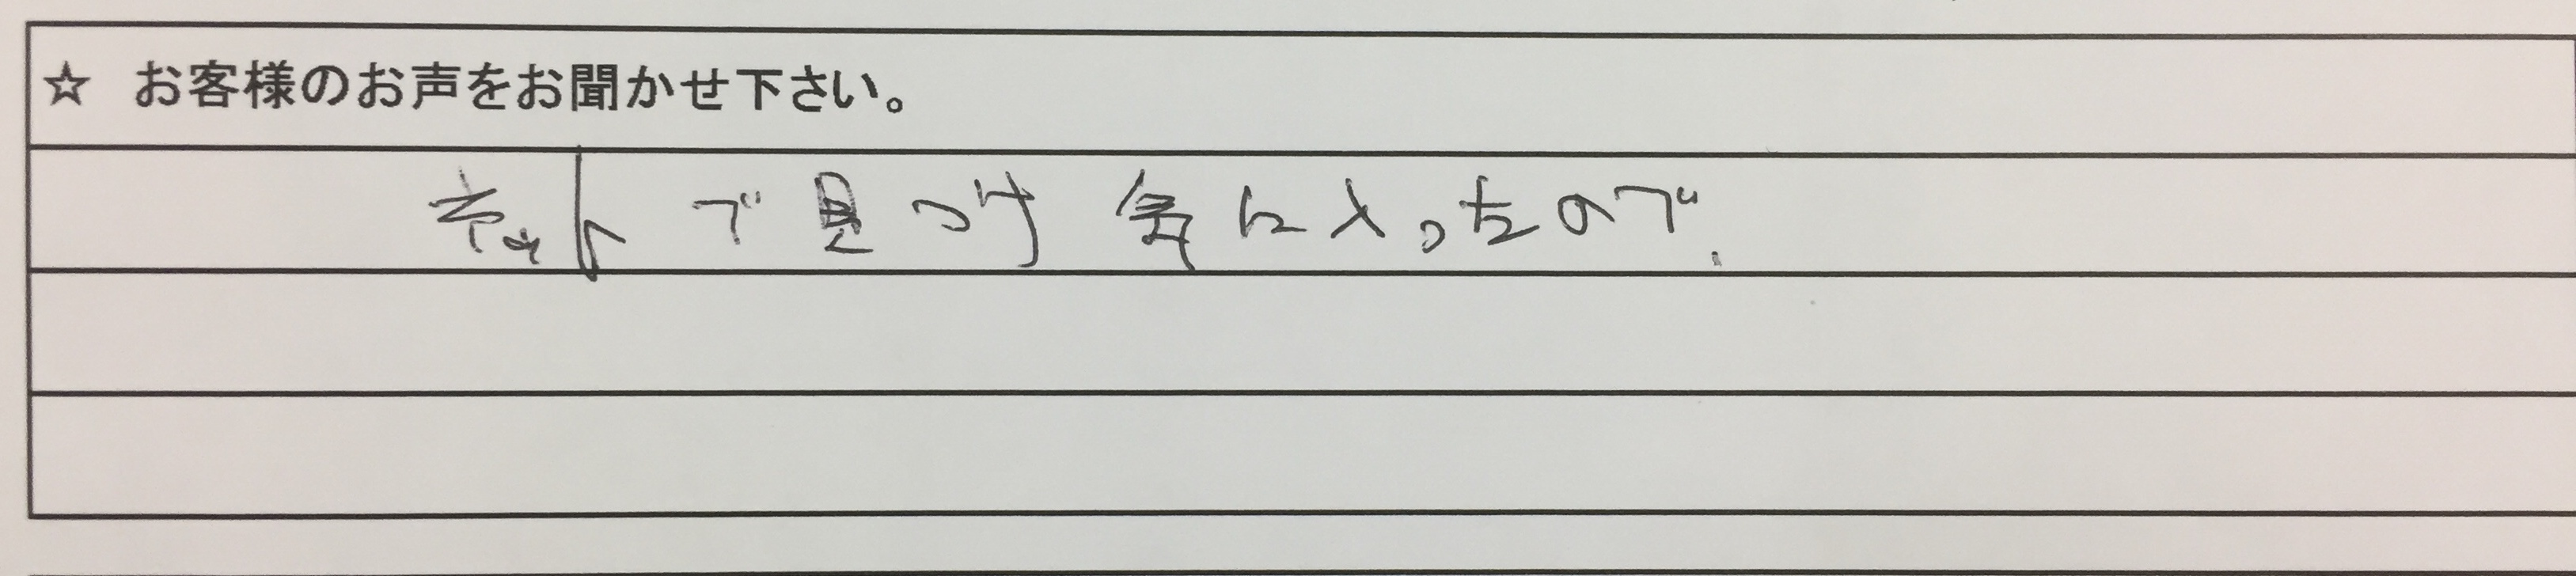 ☆ お客様のお声をお聞かせ下さい。
ネットで見つけ気に入ったので.